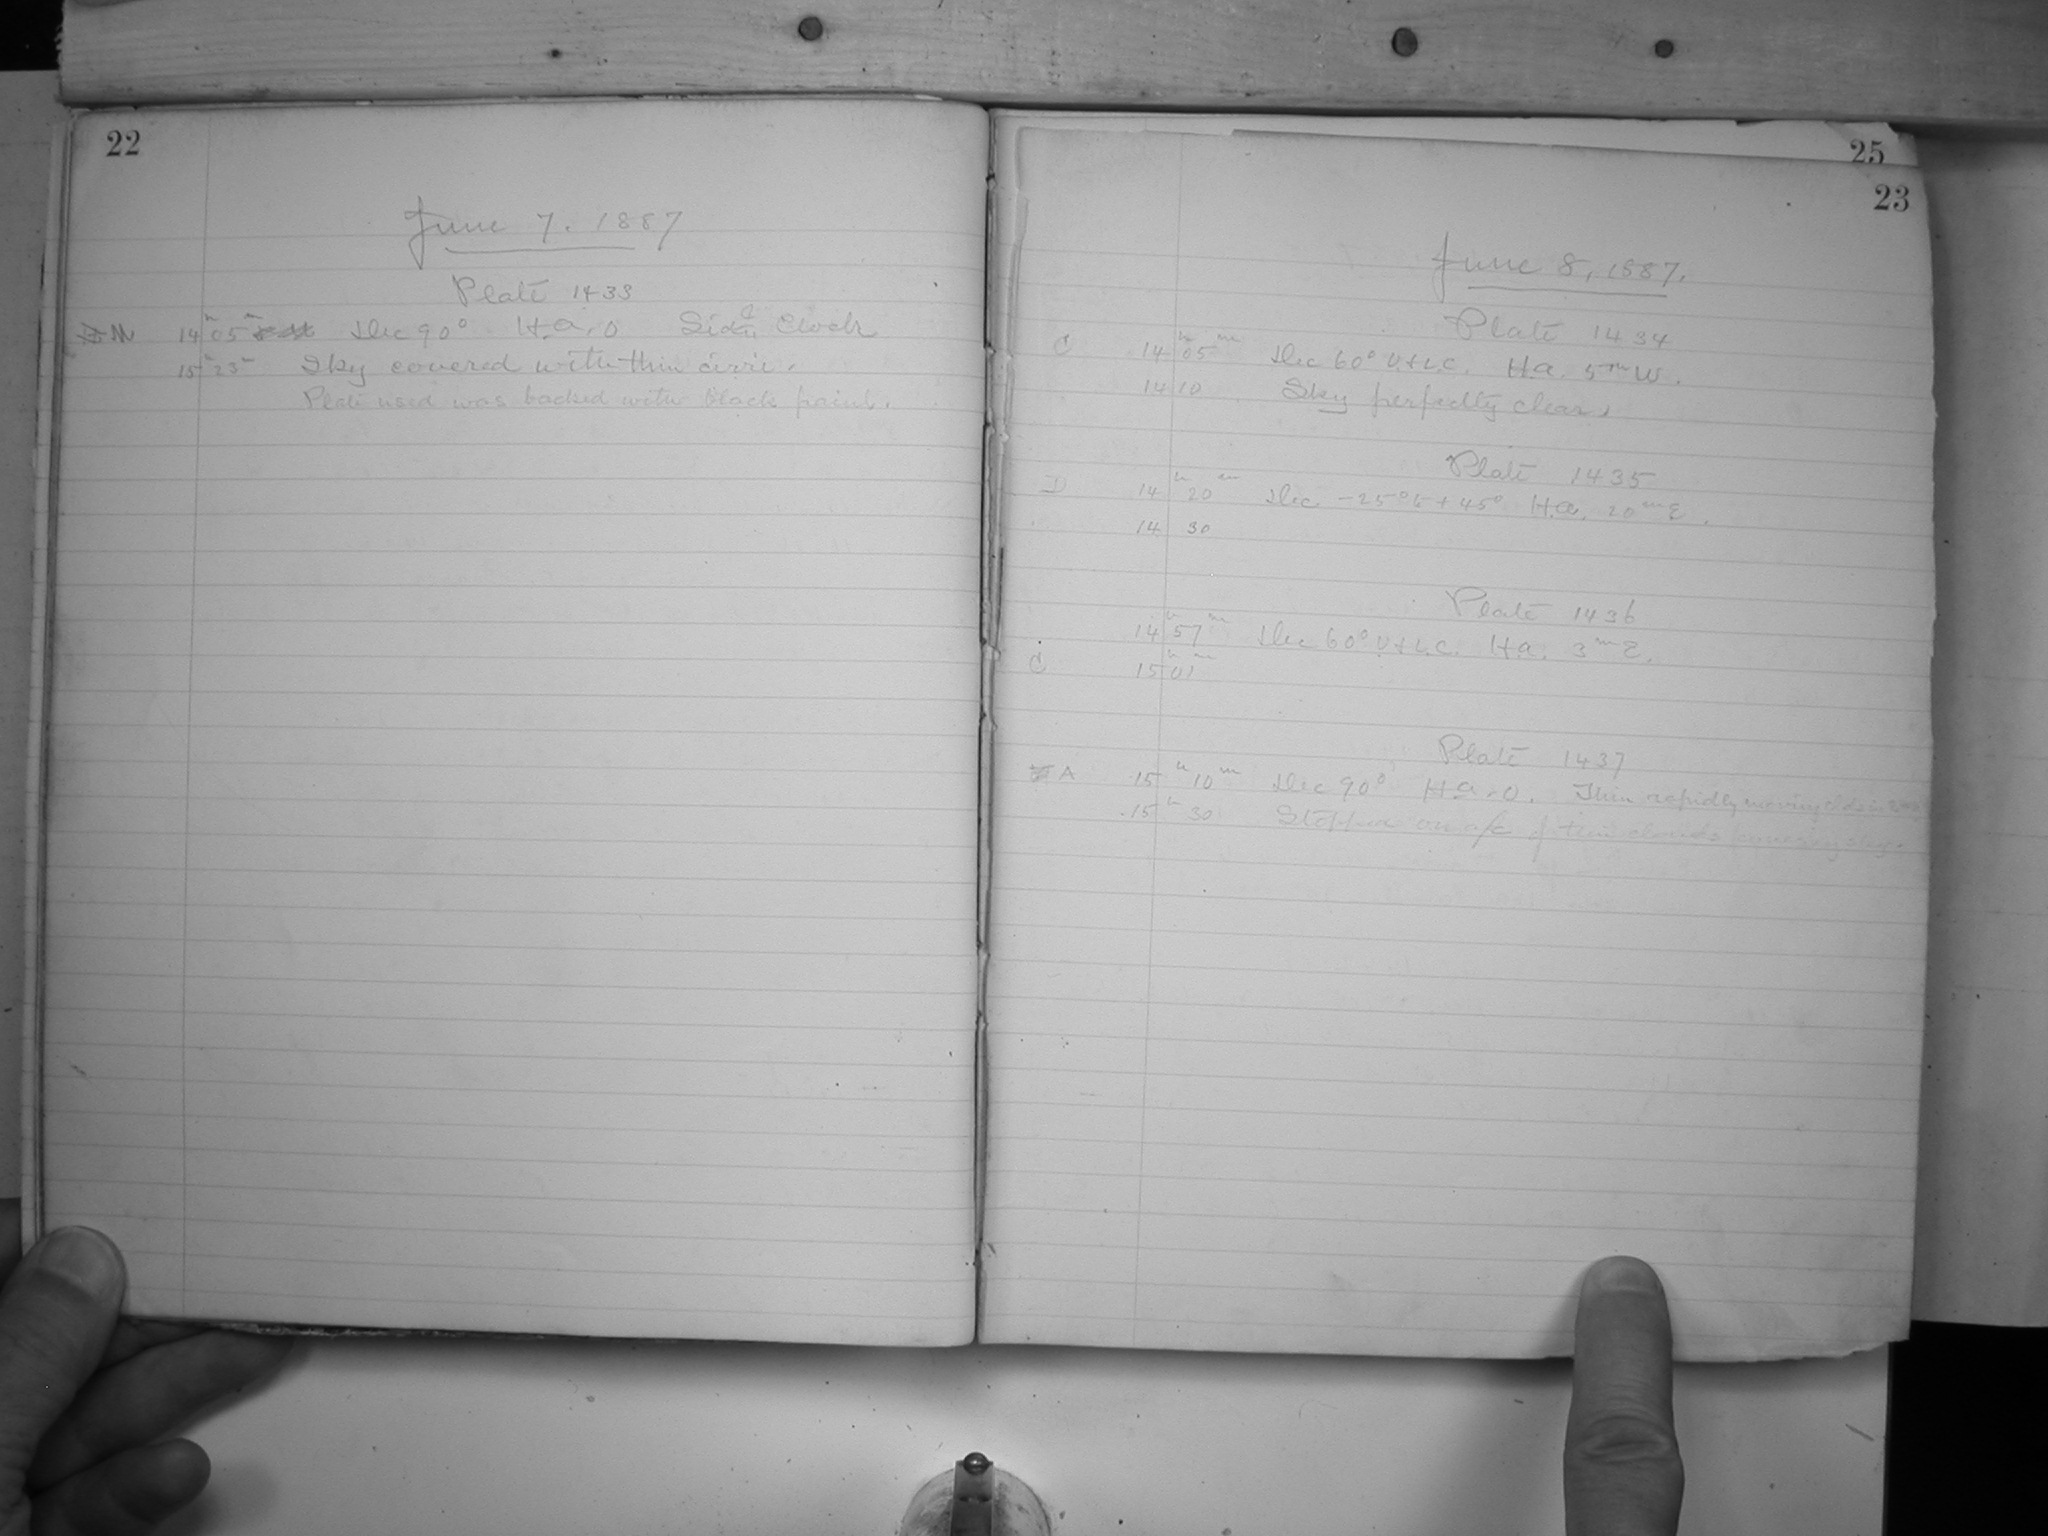 22
June 7. 1887
Plate 1433
M 14h 05m Dec 90° H.a. 0 Sidl Clock
15h 23m Sky covered with thin cirri.
Plate used was backed with black paint.
25
23
June 8, 1887.
Plate 1434
C 14h 05m Dec 60° U+L.C. H.a. 5m W.
14 10 Sky perfectly clear.
Plate 1435
D 14h 20m Dec -25° to +45° H.a. 20m E.
14 30
Plate 1436
14h 57m Dec 60° U+L.C. H.a. 3m E.
C 15h 01m
Plate 1437
A 15h 10m Dec 90° H.a. 0. Thin rapidly moving clds in
15h 30 Stopped on a/c of thin clouds covering sky.